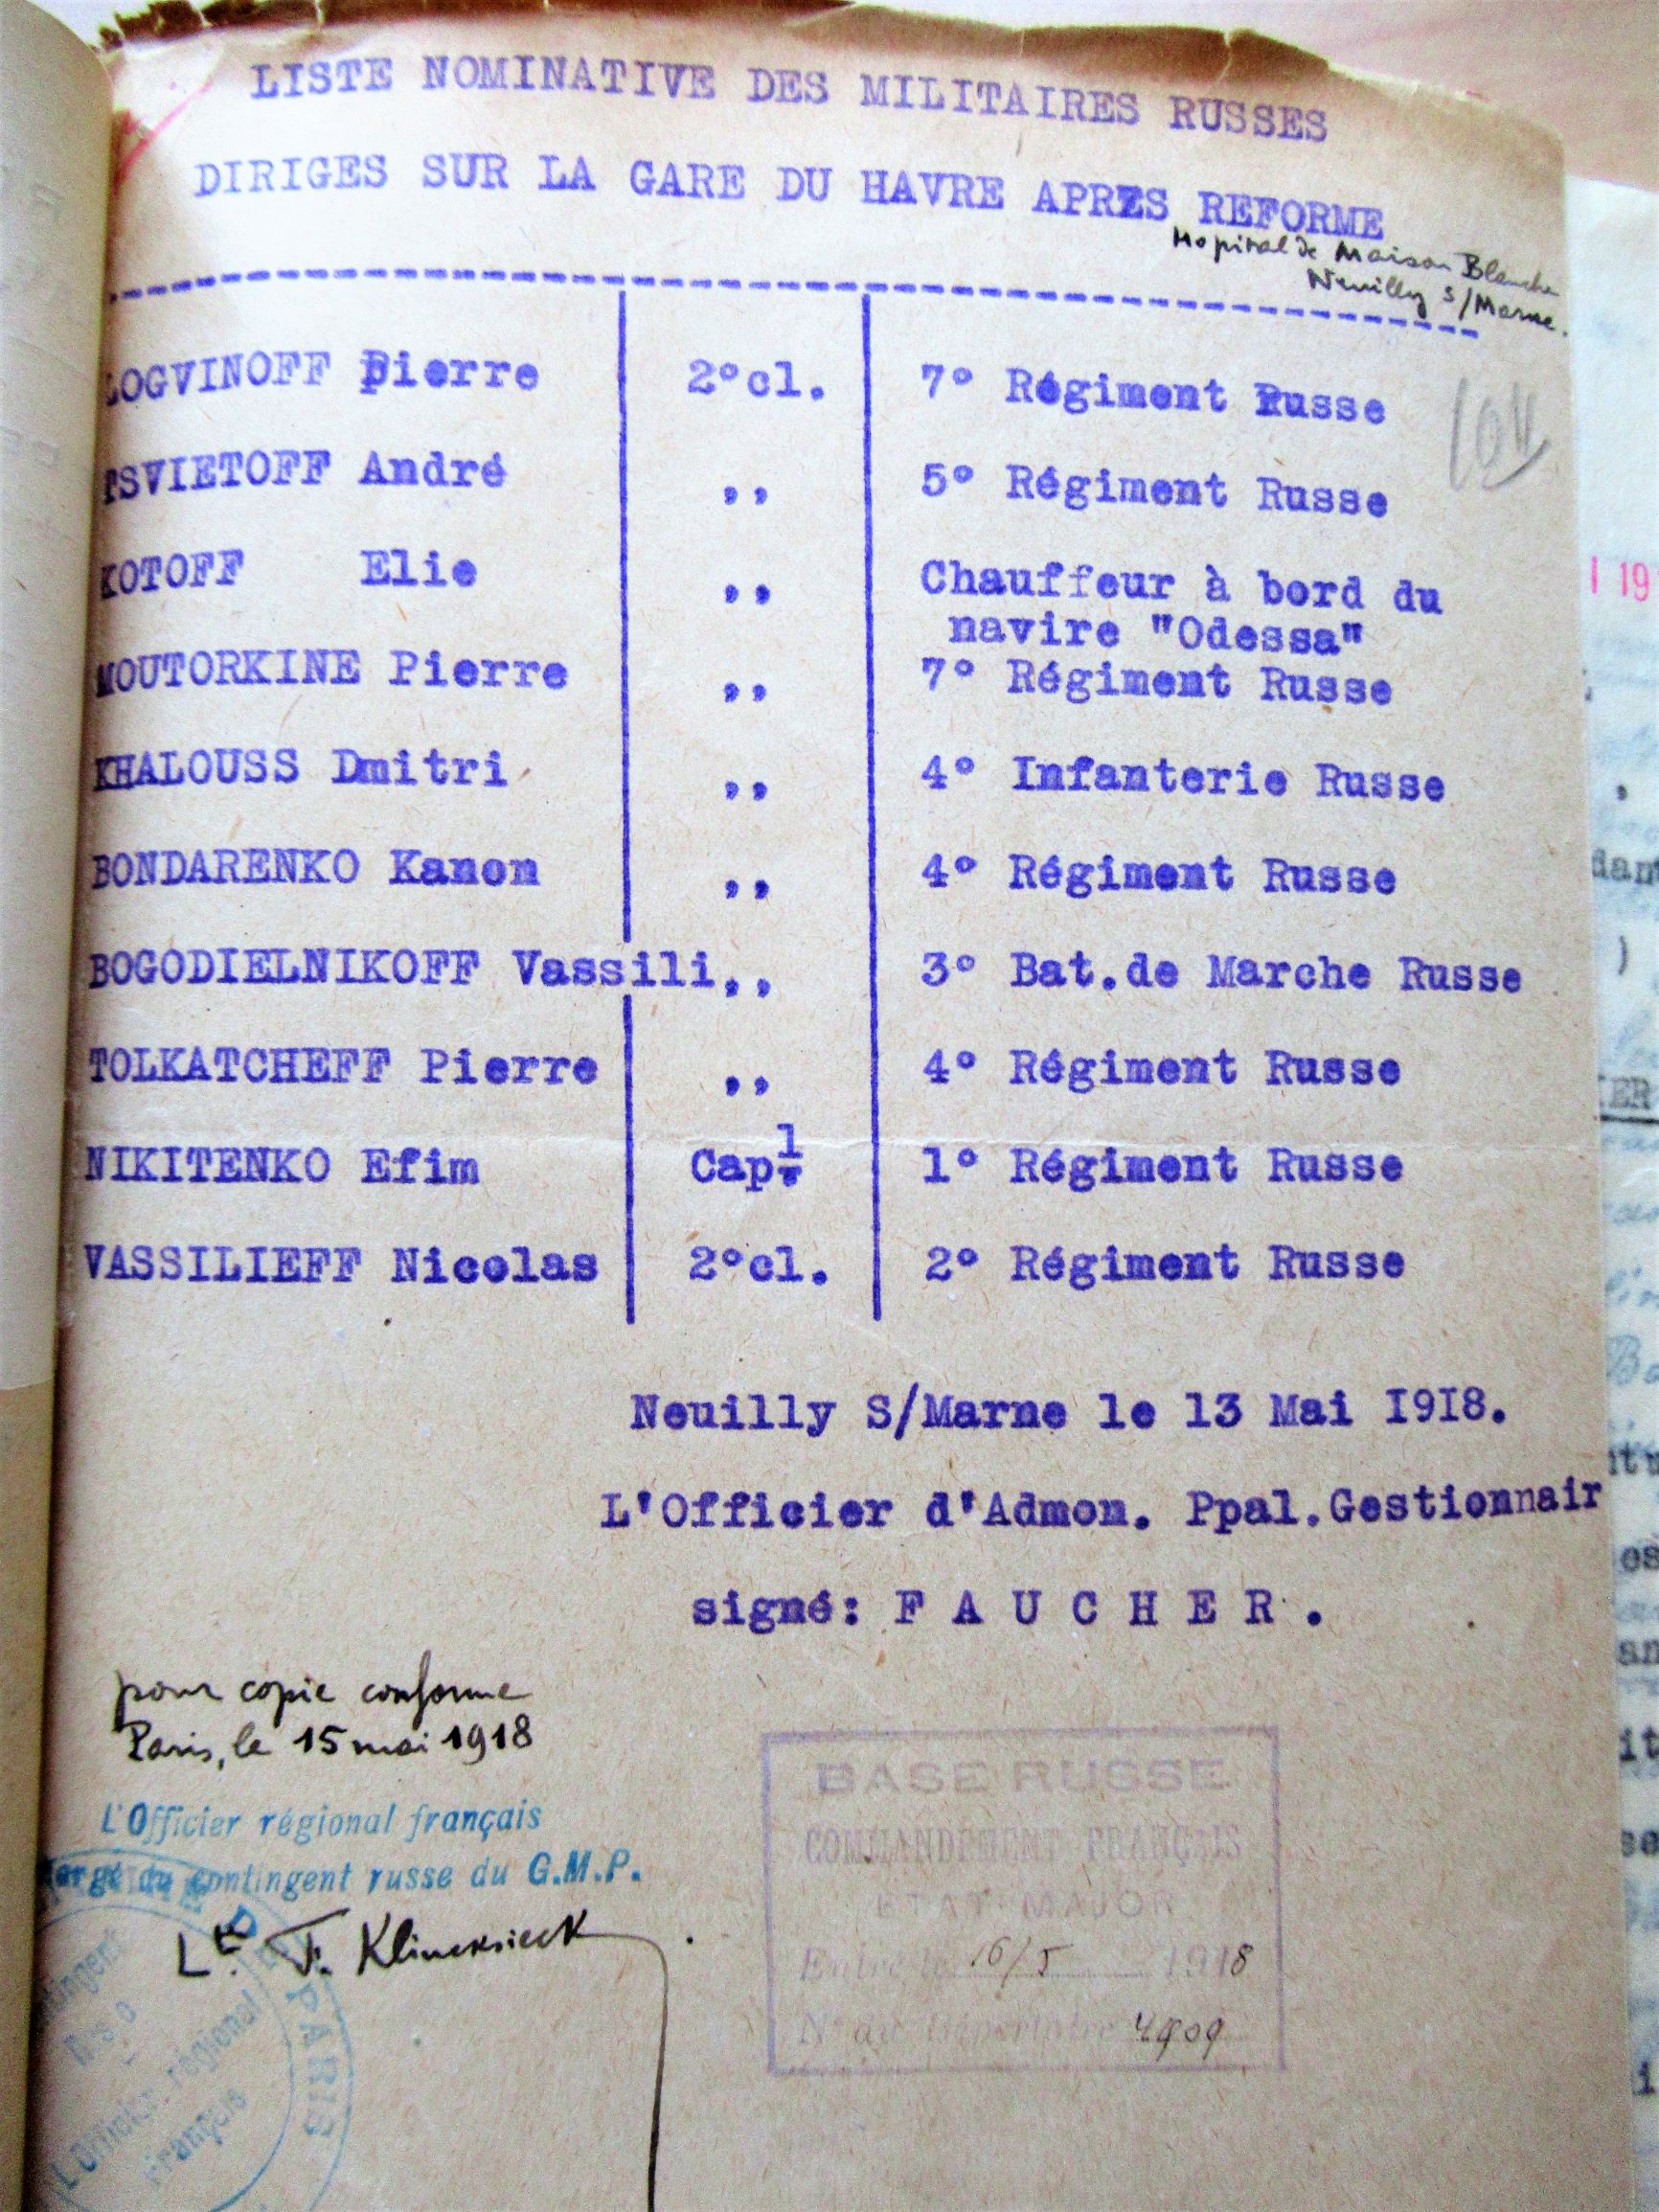 LISTE NOMINATIVE DES MILITAIRES RUSSES
DIRIGES SUR LA GARE DU HAVRE APRES REFORME
Hopital de Maison Blanche
Neuilly s/Marne.
LOGVINOFF Pierre 2°cl. 7° Régiment Russe
104
TSVIETOFF André ,, 5° Régiment Russe
KOTOFF Elie ,, Chauffeur à bord du
navire "Odessa"
MOUTORKINE Pierre ,, 7° Régiment Russe
KHALOUSS Dmitri ,, 4° Infanterie Russe
BONDARENKO Kanon ,, 4° Régiment Russe
BOGODIELNIKOFF Vassili ,, 3° Bat.de Marche Russe
TOLKATCHEFF Pierre ,, 4° Régiment Russe
NIKITENKO Efim Capl 1° Régiment Russe
VASSILIEFF Nicolas 2°cl. 2° Régiment Russe
Neuilly S/Marne le 13 Mai 1918.
L'Officier d'Admon. Ppal.Gestionnair
signé: F A U C H E R .
pour copie conforme
Paris, le 15 mai 1918
L'Officier régional français
du contingent russe du G.M.P.
Lt. F. Klincksieck
BASE RUSSE
COMMANDEMENT FRANÇAIS
ETAT-MAJOR
Entré le 16/5 1918
N° du
PARIS
L'Officier régional
français
I 19